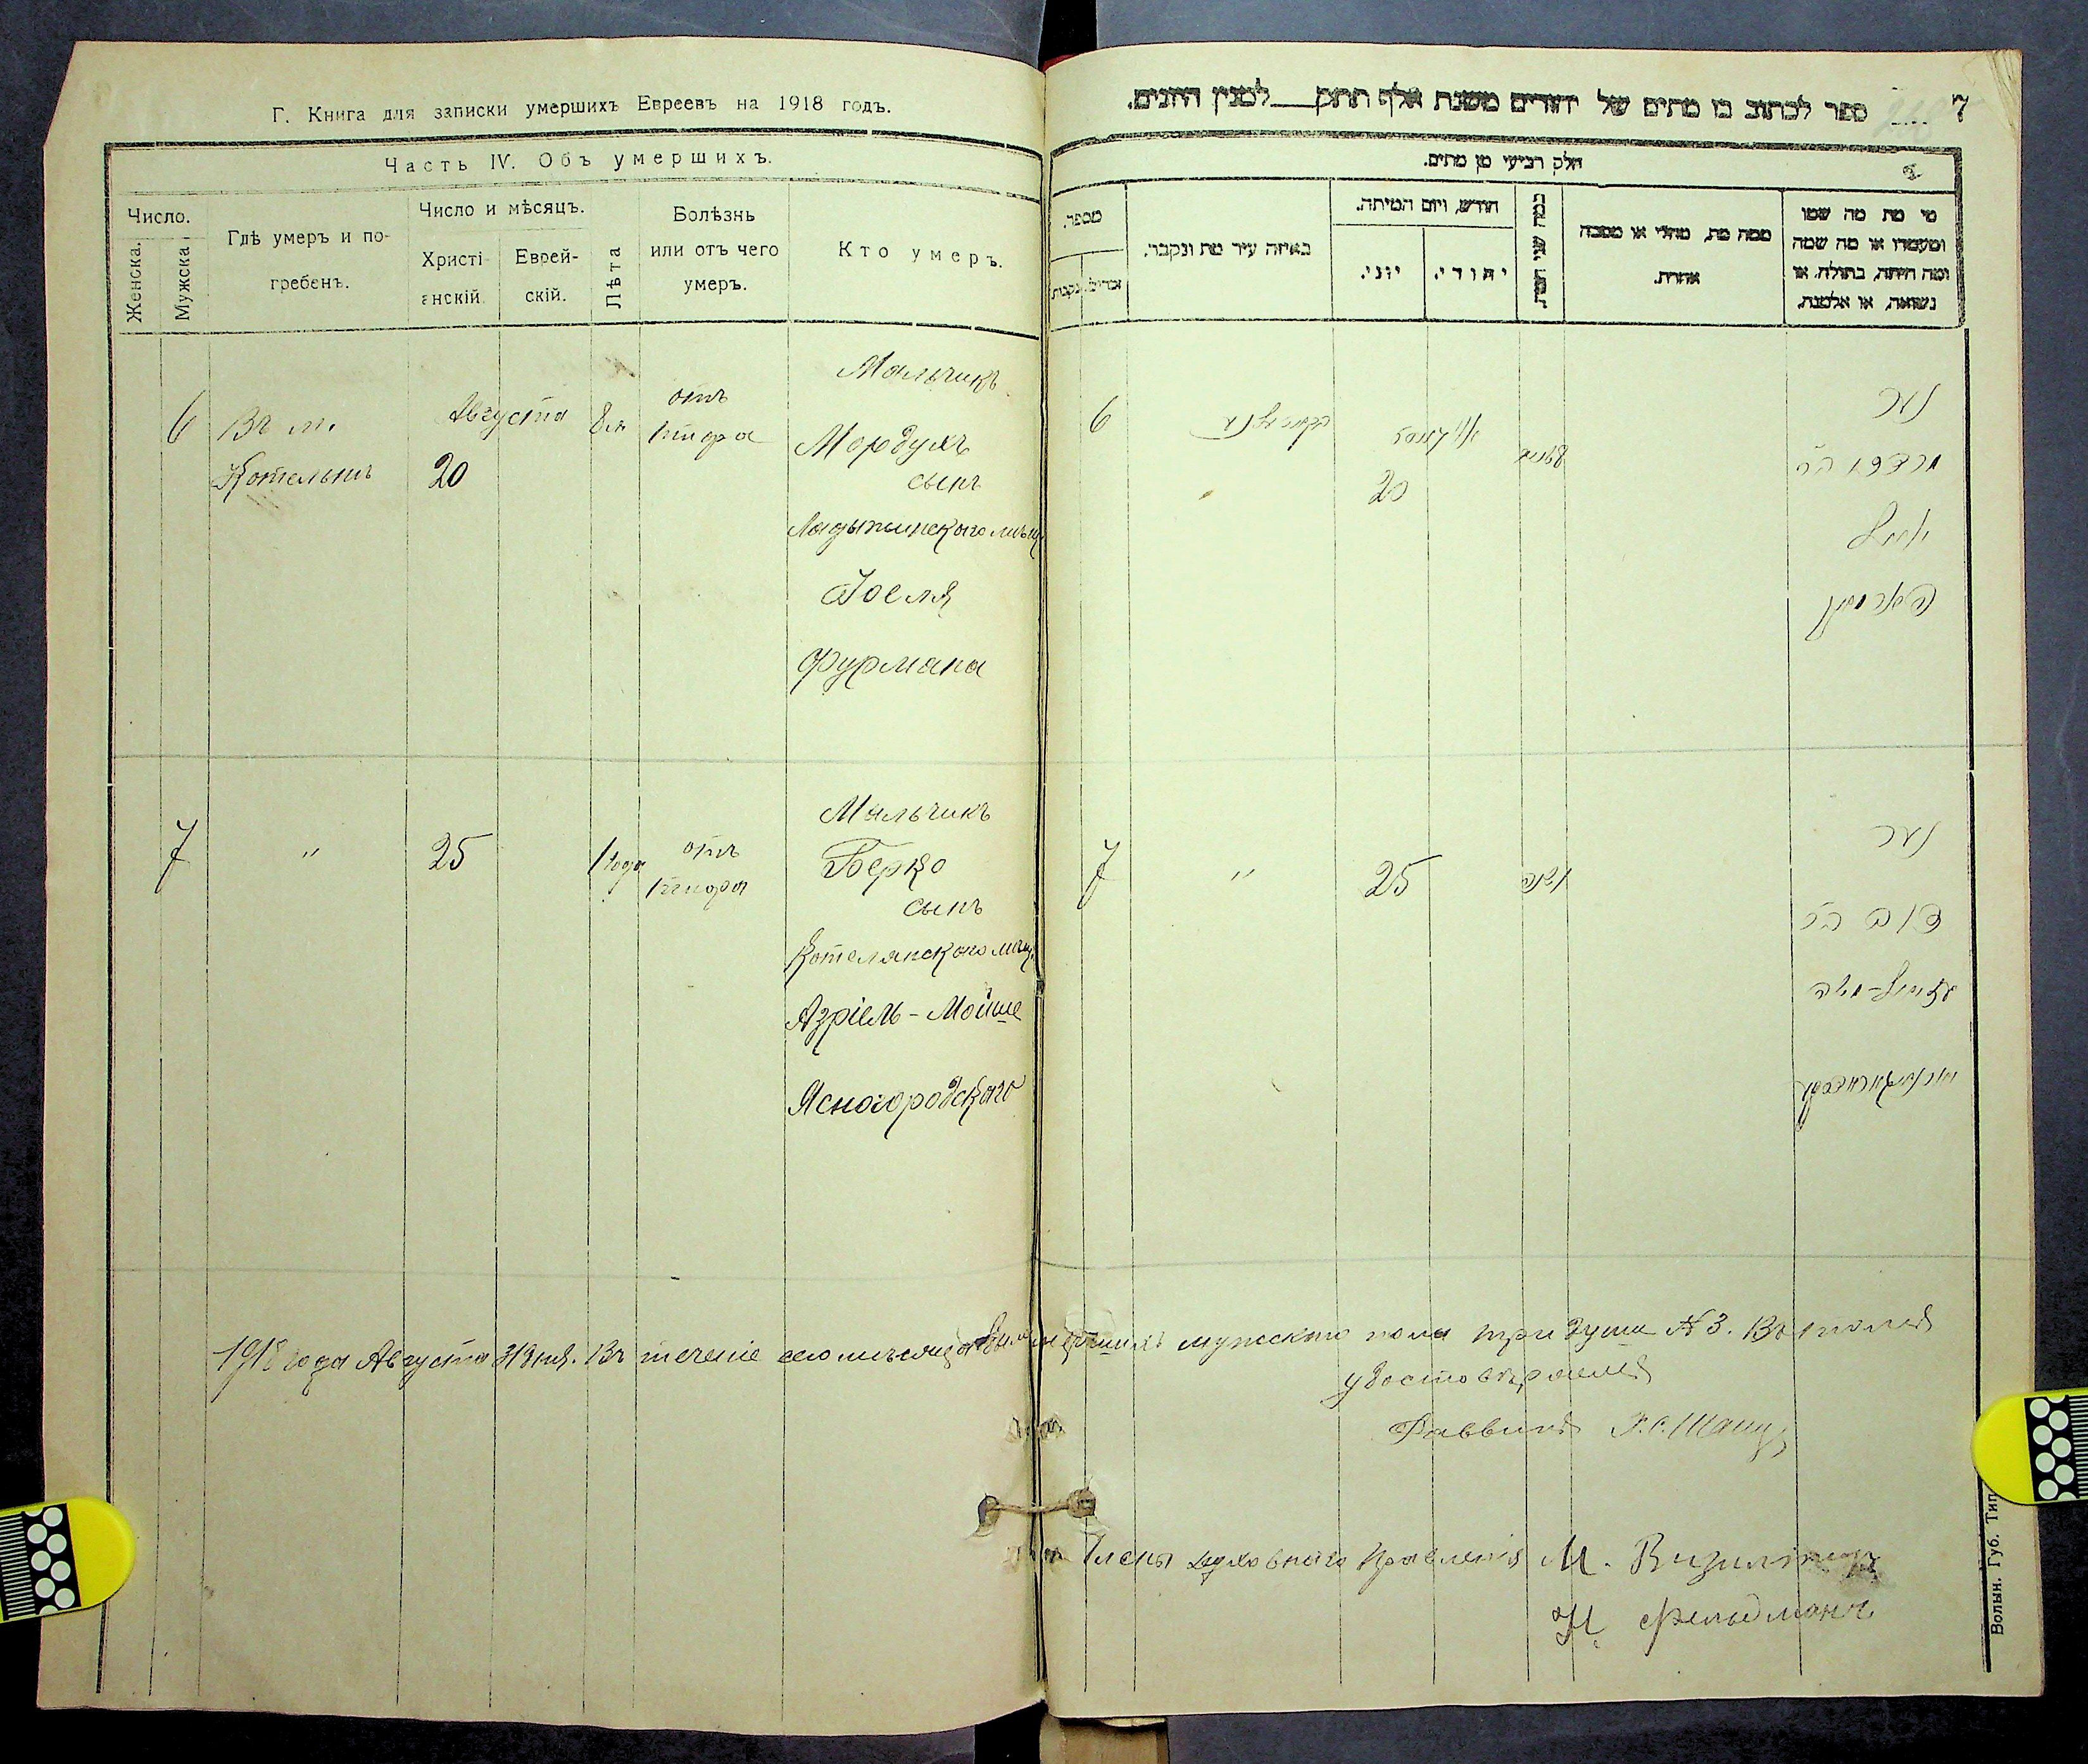 Г. Книга для записки умершихъ Евреевъ на 1918 годъ.
Часть IV. Объ умершихъ.
Число.
Женска.
Мужска
Гдѣ умеръ и по-
гребенъ.
Число и мѣсяцъ.
Христі-
анскій.
Еврей-
скій.
Лѣта
Болѣзнь
или отъ чего
умеръ.
Кто умеръ.
6
Въ м.
Котельнѣ
Августа
20
8 л
отъ
тифа
Мальчикъ
Мордухъ
сынъ
Ладыжинскаго мѣщ
Іоеля
Фурмана
7
"
25
1 года
отъ
Мальчикъ
Берко
сынъ
Котелянского мѣщ.
Азріель-Мойше
Ясногородскаго
1918 года Августа 31 дня. Въ теченіе сего мѣсяца было умершихъ мужского пола три души № 3. Въ томъ
удостовѣряемъ
Раввинъ
Члены духовнаго Правленія М.
Фельдманъ
7
ספר לכתוב בו מתים של יהודים משנת אלף תתק ___ למנין היונים.
חלק רביעי מן מתים.
מספר.
זכרים.
נקבות
באיזה עיר מת ונקבר.
חודש, ויום המיתה.
יוני.
יהודי.
כמה שני חייו.
ממה מת, מחלי או מסבה
אחרת.
מי מת מה שמו
ומעמדו או מה שמה
ומה היתה, בתולה, או
נשואה, או אלמנה.
6
20
נער
מרדכי בר
יואל
פוהרמאן
7
"
25
נער
דוב בר
עזריאל-משה
Волын. Губ. Тип